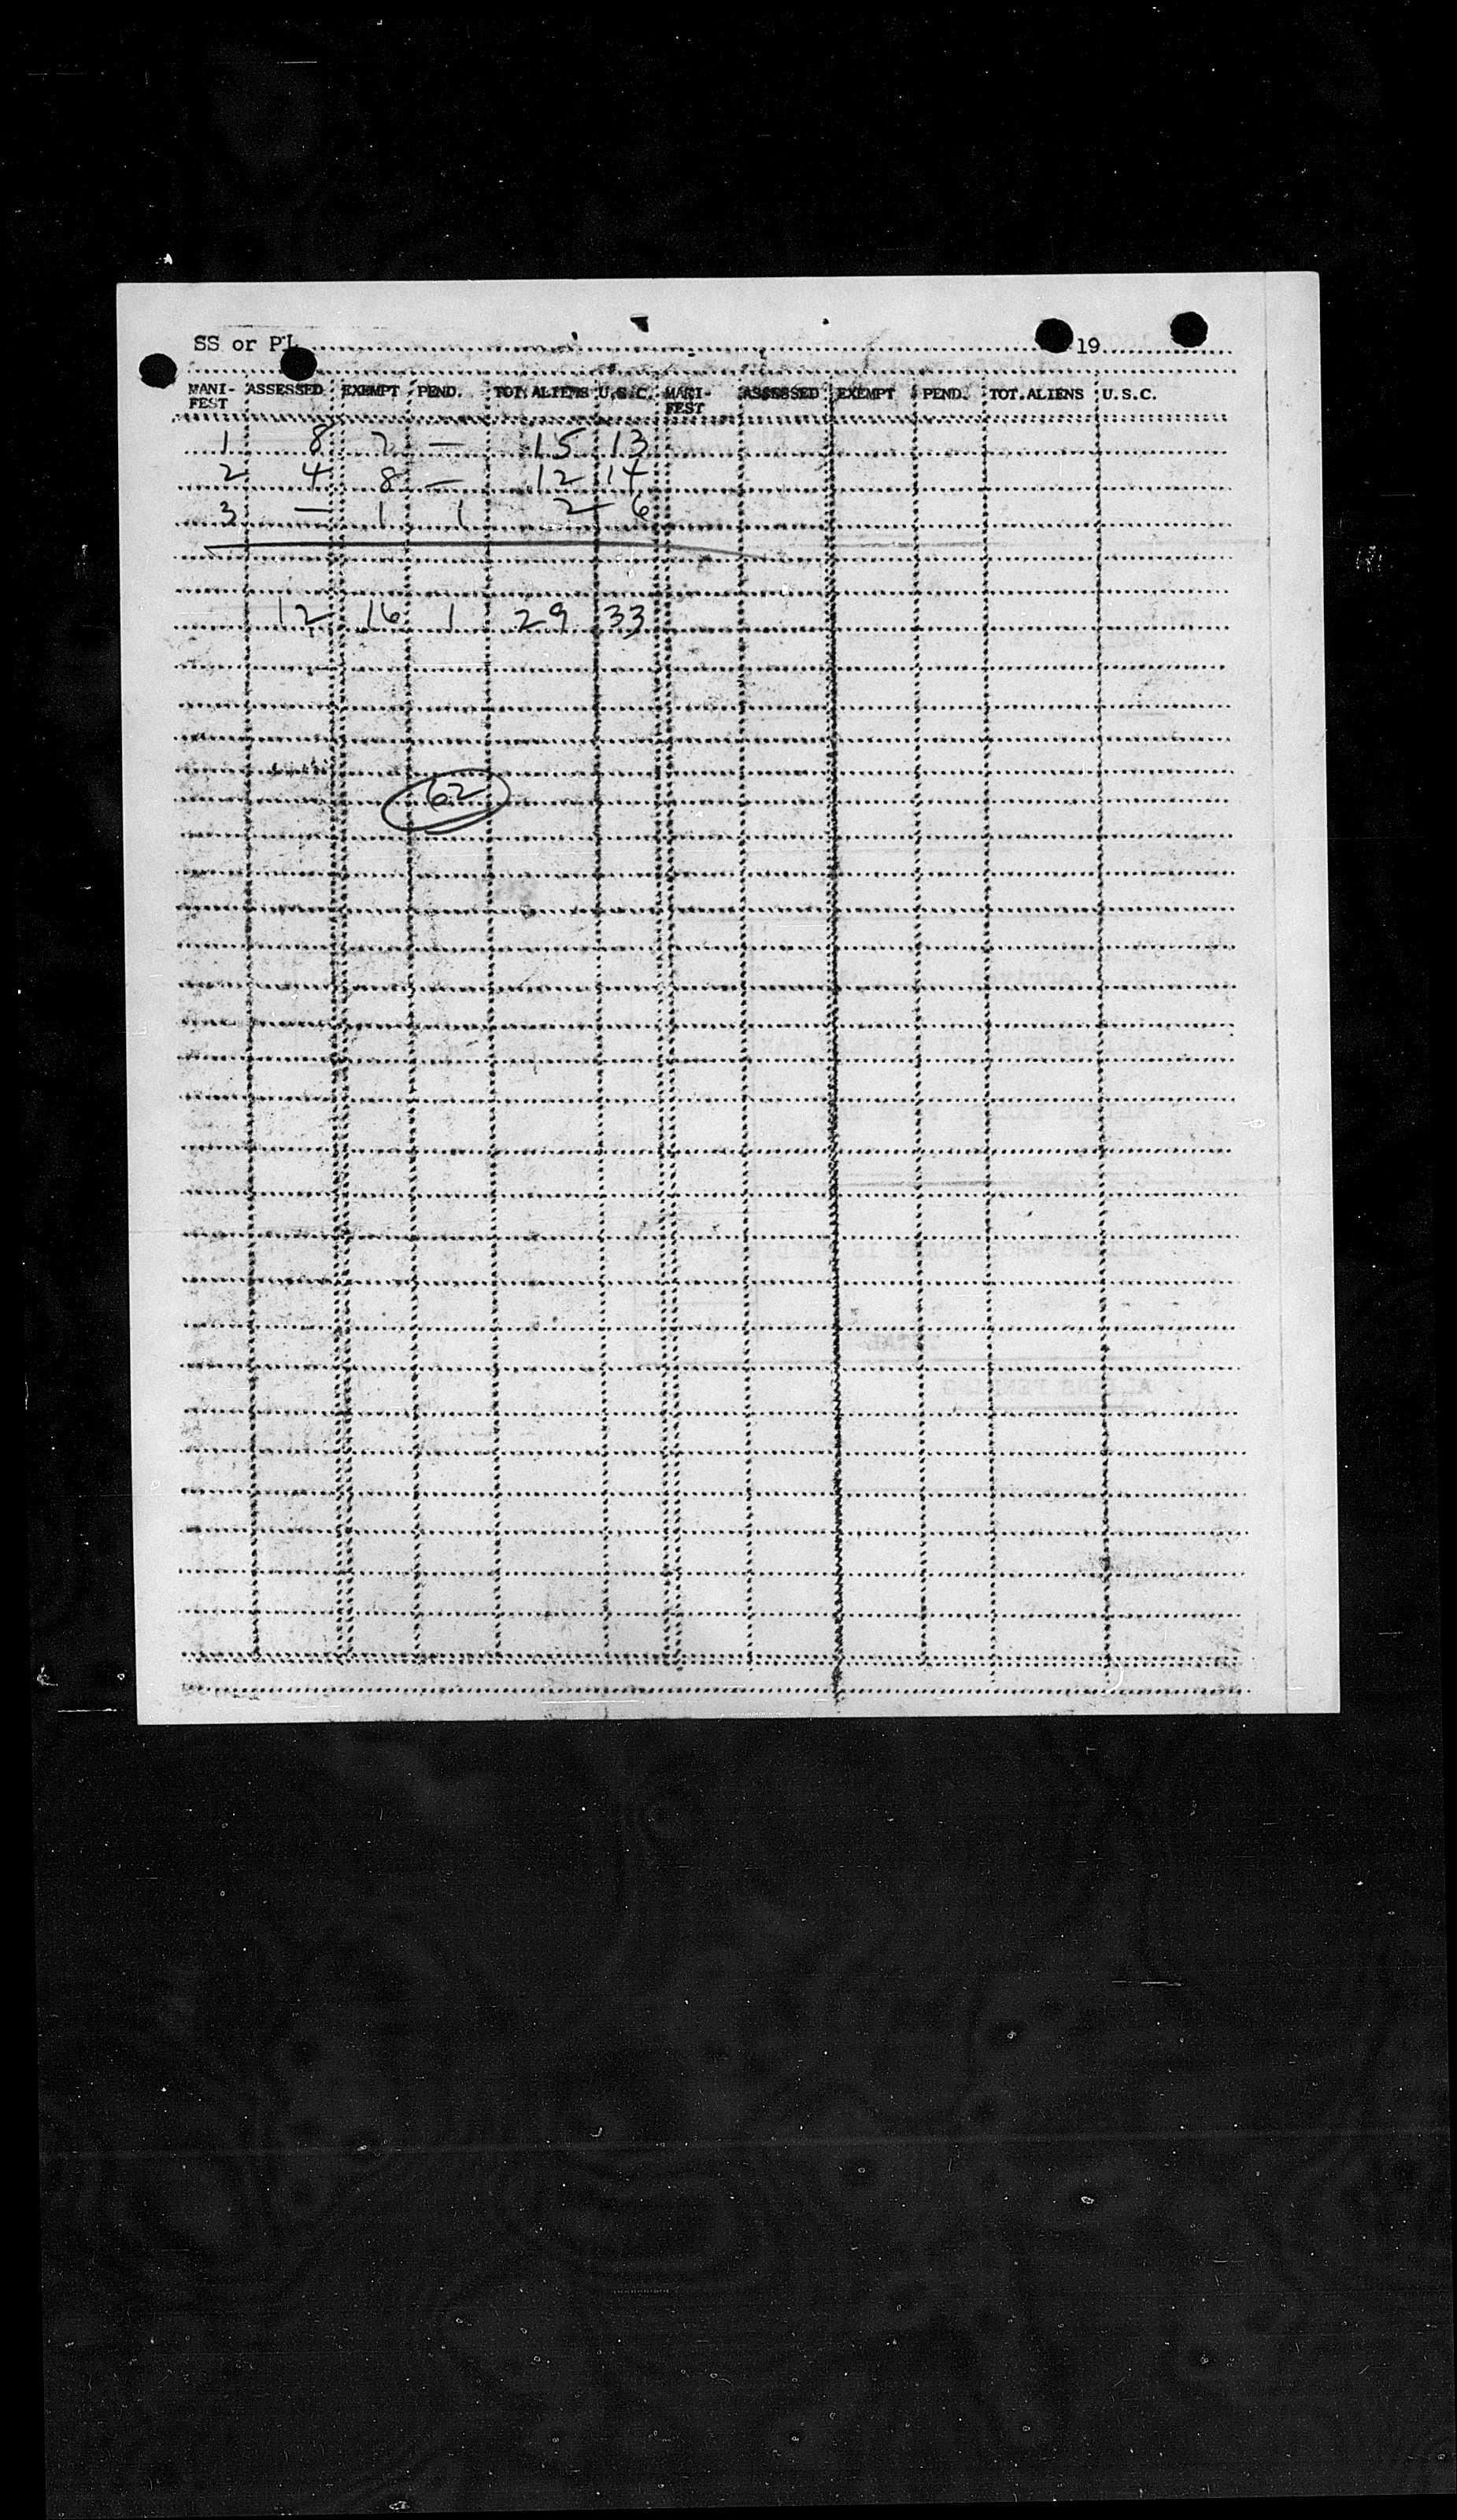 SS or PL 19
MANI- ASSESSED EXEMPT PEND. TOT. ALIENS U.S.C. MANI- ASSESSED EXEMPT PEND. TOT.ALIENS U.S.C.
FEST FEST
1 8 7 — 15 13
2 4 8 — 12 14
3 — 1 1 2 6
12 16 1 29 33
62